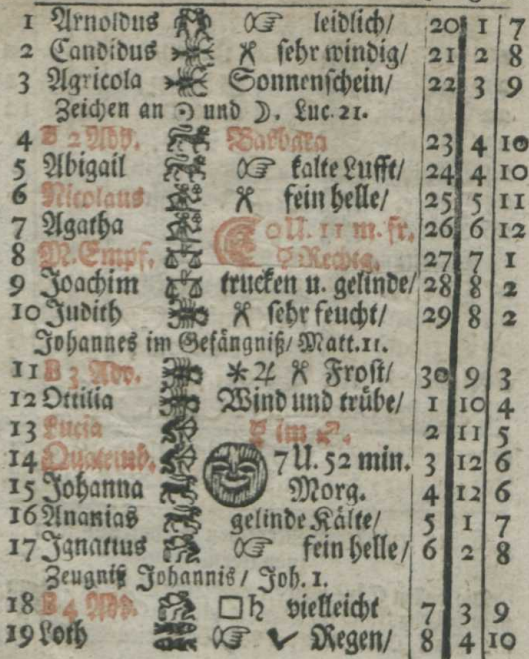 1 Arnoldus ☞ leidlich/ 20 1 7
2 Candidus sehr windig/ 21 2 8
3 Agricola Sonnenschein/ 22 3 9
Zeichen an ☉ und ☽. Luc. 21.
4 B 2 Adv. Barbara 23 4 10
5 Abigail ☞ kalte Lufft/ 24 4 10
6 Nicolaus fein helle/ 25 5 11
7 Agatha ☾ 0 U. 11 m. fr. 26 6 12
8 M. Empf. 27 7 1
9 Joachim trucken u. gelinde/ 28 8 2
10 Judith sehr feucht/ 29 8 2
Johannes im Gefängniß/ Matt. 11.
11 B 3 Adv. ✶ ♃ Frost/ 30 9 3
12 Ottilia Wind und trübe/ 1 10 4
13 Lucia im ♐. 2 11 5
14 Quatemb. 7 U. 52 min. 3 12 6
15 Johanna Morg. 4 12 6
16 Ananias gelinde Kälte/ 5 1 7
17 Ignatius ☞ fein helle/ 6 2 8
Zeugniß Johannis/ Joh. 1.
18 B 4 Adv. □ ♄ vielleicht 7 3 9
19 Loth ☞ ✓ Regen/ 8 4 10